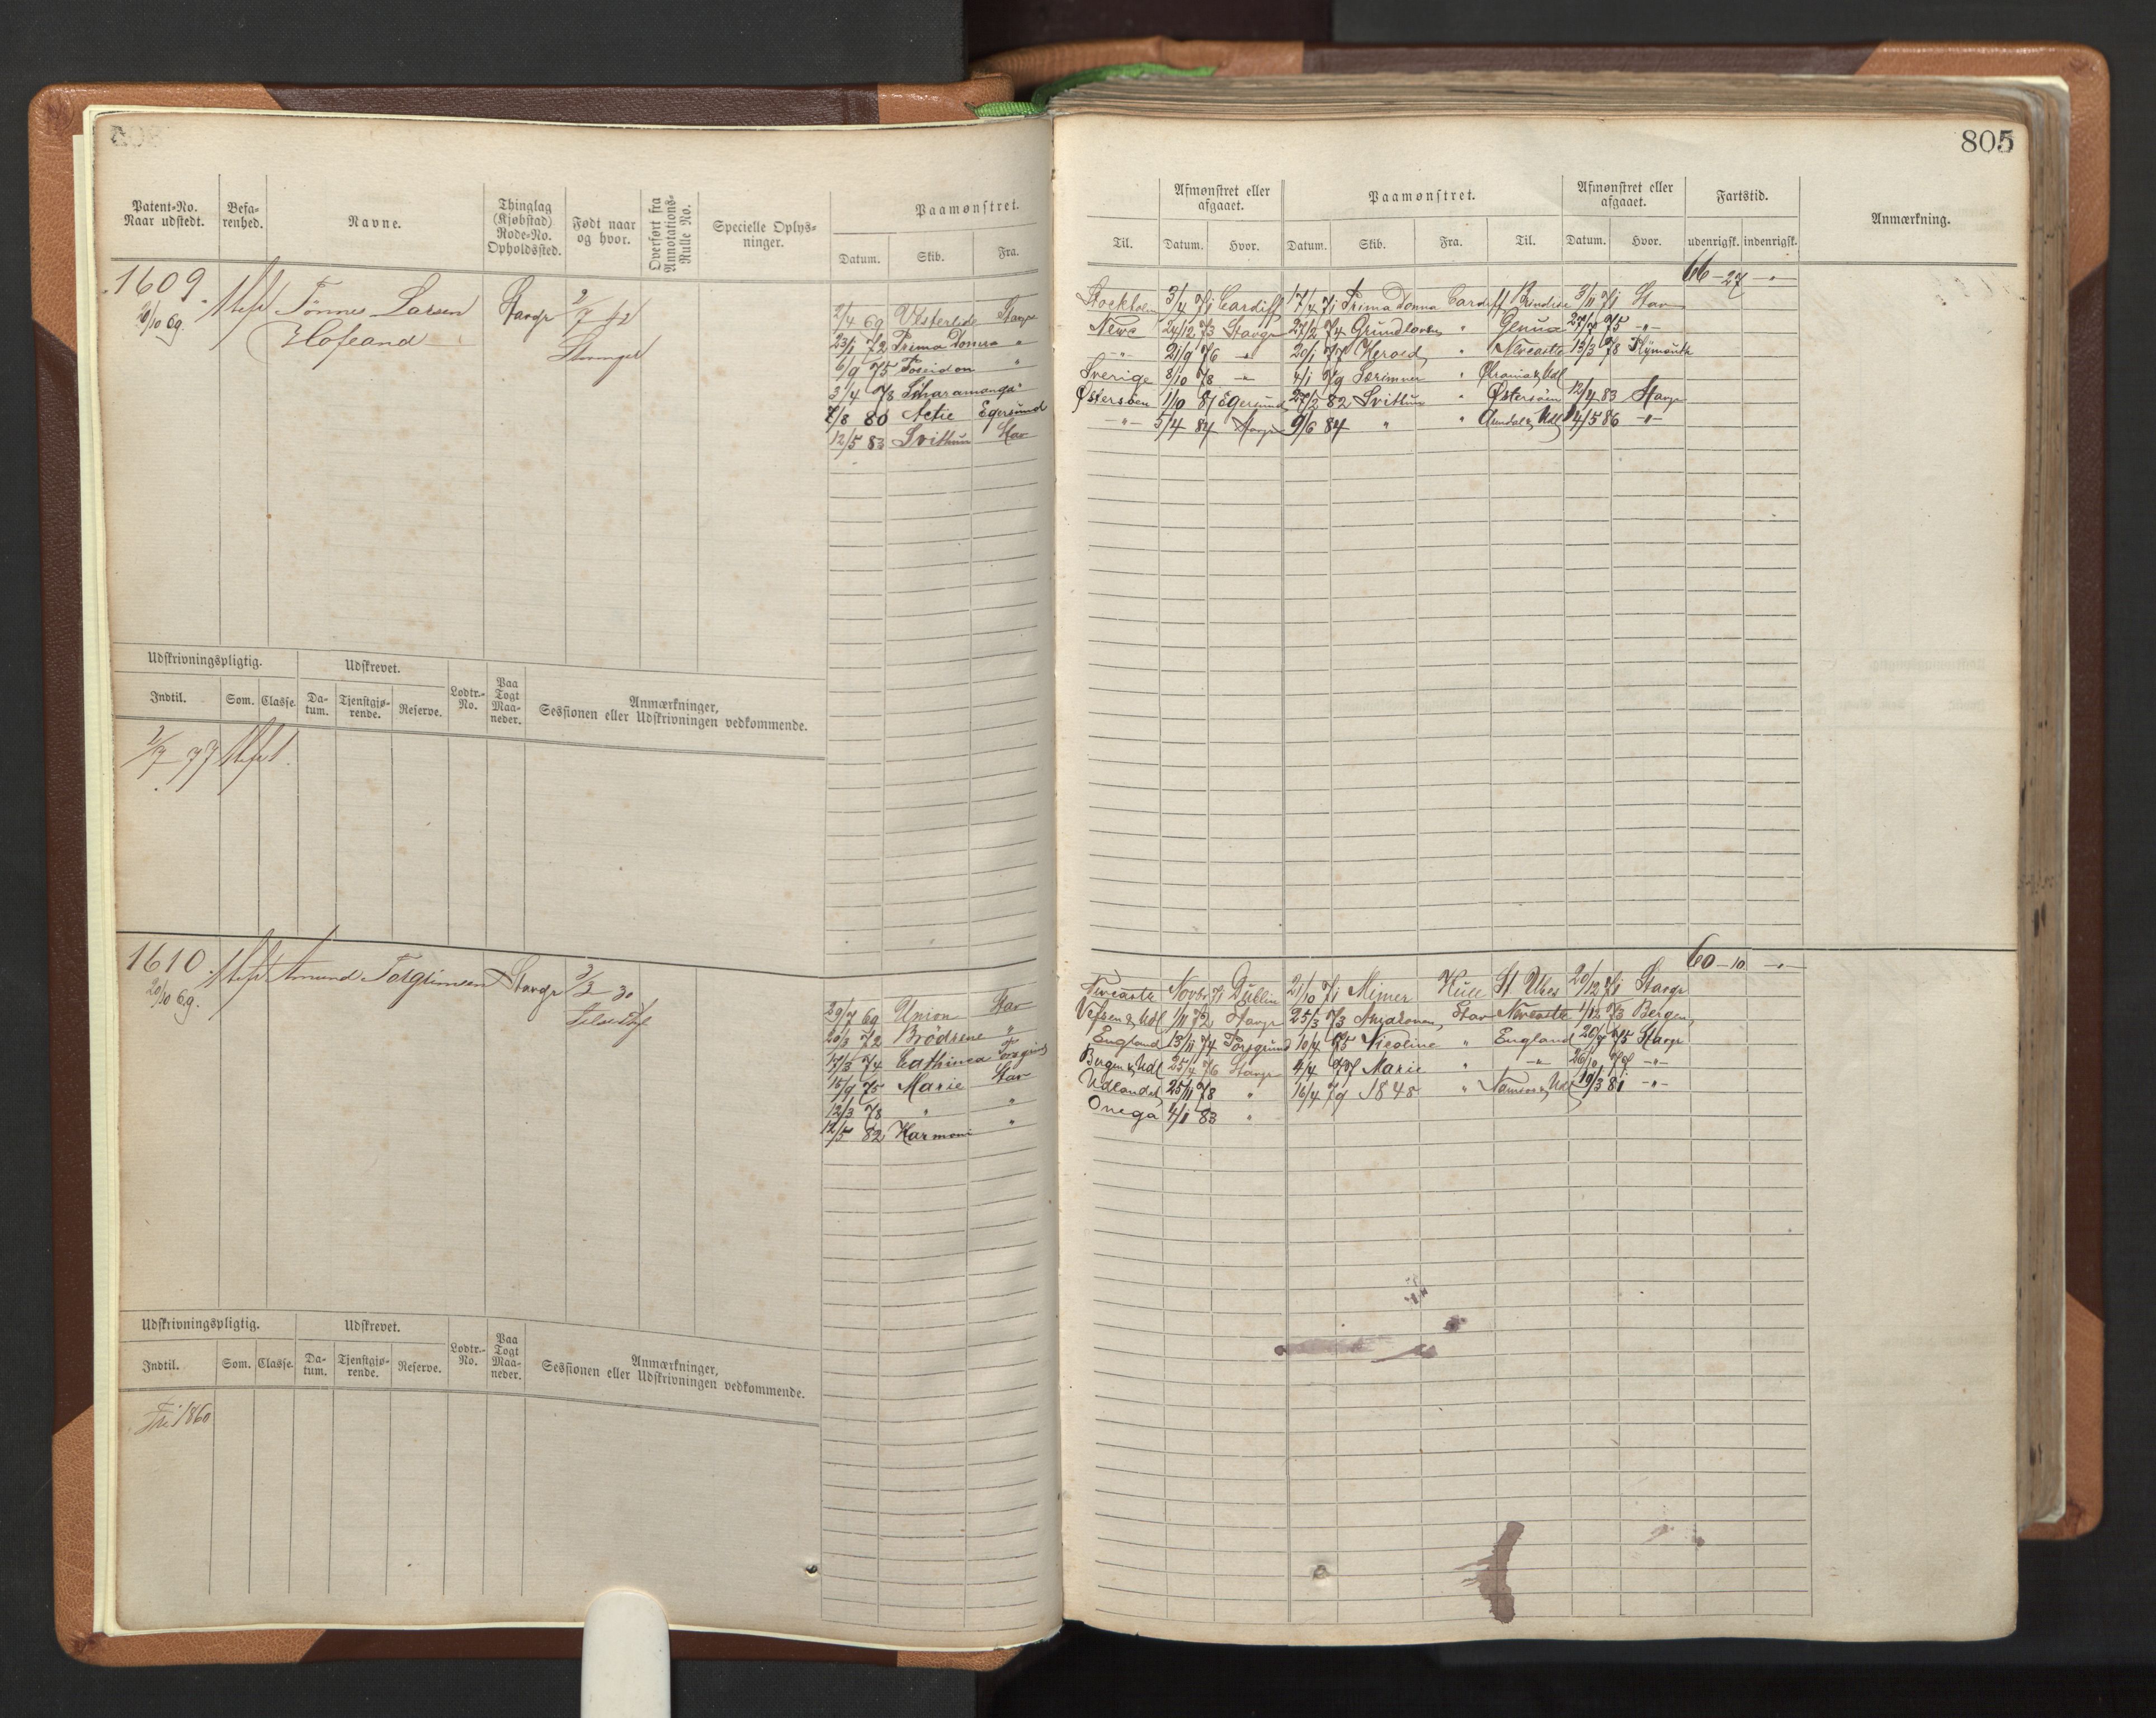 805
Patent-No.
Naar udstedt.
Befa-
renhed.
Navne.
Thinglag
(Kjøbstad)
Rode-No.
Opholdssted.
Født naar
og hvor.
Overført fra
Annotations-
Rulle No.
Specielle Oplys-
ninger.
Paamønstret.
Datum. Skib. Fra.
1609.
20/10 69.
Tønnes Larsen
Stavgr
2/7 42
Stavanger
2/4 69 Vesterlide Stavgr
23/1 72 Prima Donna "
6/9 75 Poseidon "
3/4 78 Scharamanga "
7/8 80 Actie Egersund
12/5 83 Svithun Stav
Udskrivningspligtig. Udskrevet.
Lodtr.-
No.
Paa
Togt
Maa-
neder.
Anmærkninger,
Sessionen eller Udskrivningen vedkommende.
Indtil. Som. Classe. Da-
tum. Tjenstgjø-
rende. Reserve.
2/7 77
1610.
20/10 69.
Amund Torgrimsen Stavgr 3/3 30
29/7 69 Union Stav
20/3 72 Brødrene "
17/3 74 Cathinca Porsgrund
15/9 75 Marie Stav
12/3 78 " "
12/5 82 Harmoni "
Udskrivningspligtig. Udskrevet.
Lodtr.-
No.
Paa
Togt
Maa-
neder.
Anmærkninger,
Sessionen eller Udskrivningen vedkommende.
Indtil. Som. Classe. Da-
tum. Tjenstgjø-
rende. Reserve.
Fri 1860
Afmønstret eller
afgaaet.
Paamønstret.
Afmønstret eller
afgaaet.
Fartstid.
Anmærkning.
Til. Datum. Hvor. Datum. Skib. Fra. Til. Datum. Hvor. udenrigsk. indenrigsk.
66-27 -"-
Stockholm 3/4 71 Cardiff 17/4 71 Prima Donna Cardiff Brindisi 3/11 71 Stav
Newc 24/12 73 Stavgr 27/2 74 Grundloven " Genua 27/7 75 -"-
-"- 21/9 76 -"- 20/1 77 Herold " Newcastle 13/3 78 Plymouth
Sverige 8/10 78 -"- 4/1 79 Særimner " Chrania & Udl
Østersøen 1/10 81 Egersund 27/2 82 Svithun " Østersøen 12/4 83 Stavgr
-"- 5/4 84 Stavgr 9/6 84 " " Arendal & Udl 14/5 86 -"-
60-10 -"-
Newcastle Novbr 71 Dublin 21/10 71 Mimer Hull St Ubes 20/12 71 Stavgr
Vefsen & Udl 1/11 72 Stavgr 25/3 73 Stav Newcastle 1/12 73 Bergen,
England 13/11 74 Porsgrund 10/4 75 Nicoline " England 20/7 75 Stavgr
Bergen & Udl 25/4 76 Stavgr 4/4 77 Marie " -"- 26/10 77 -"-
Udlandet 25/11 78 " 16/4 79 1848 " Namsos & Udl 19/3 81 -"-
Onega 4/1 83 "